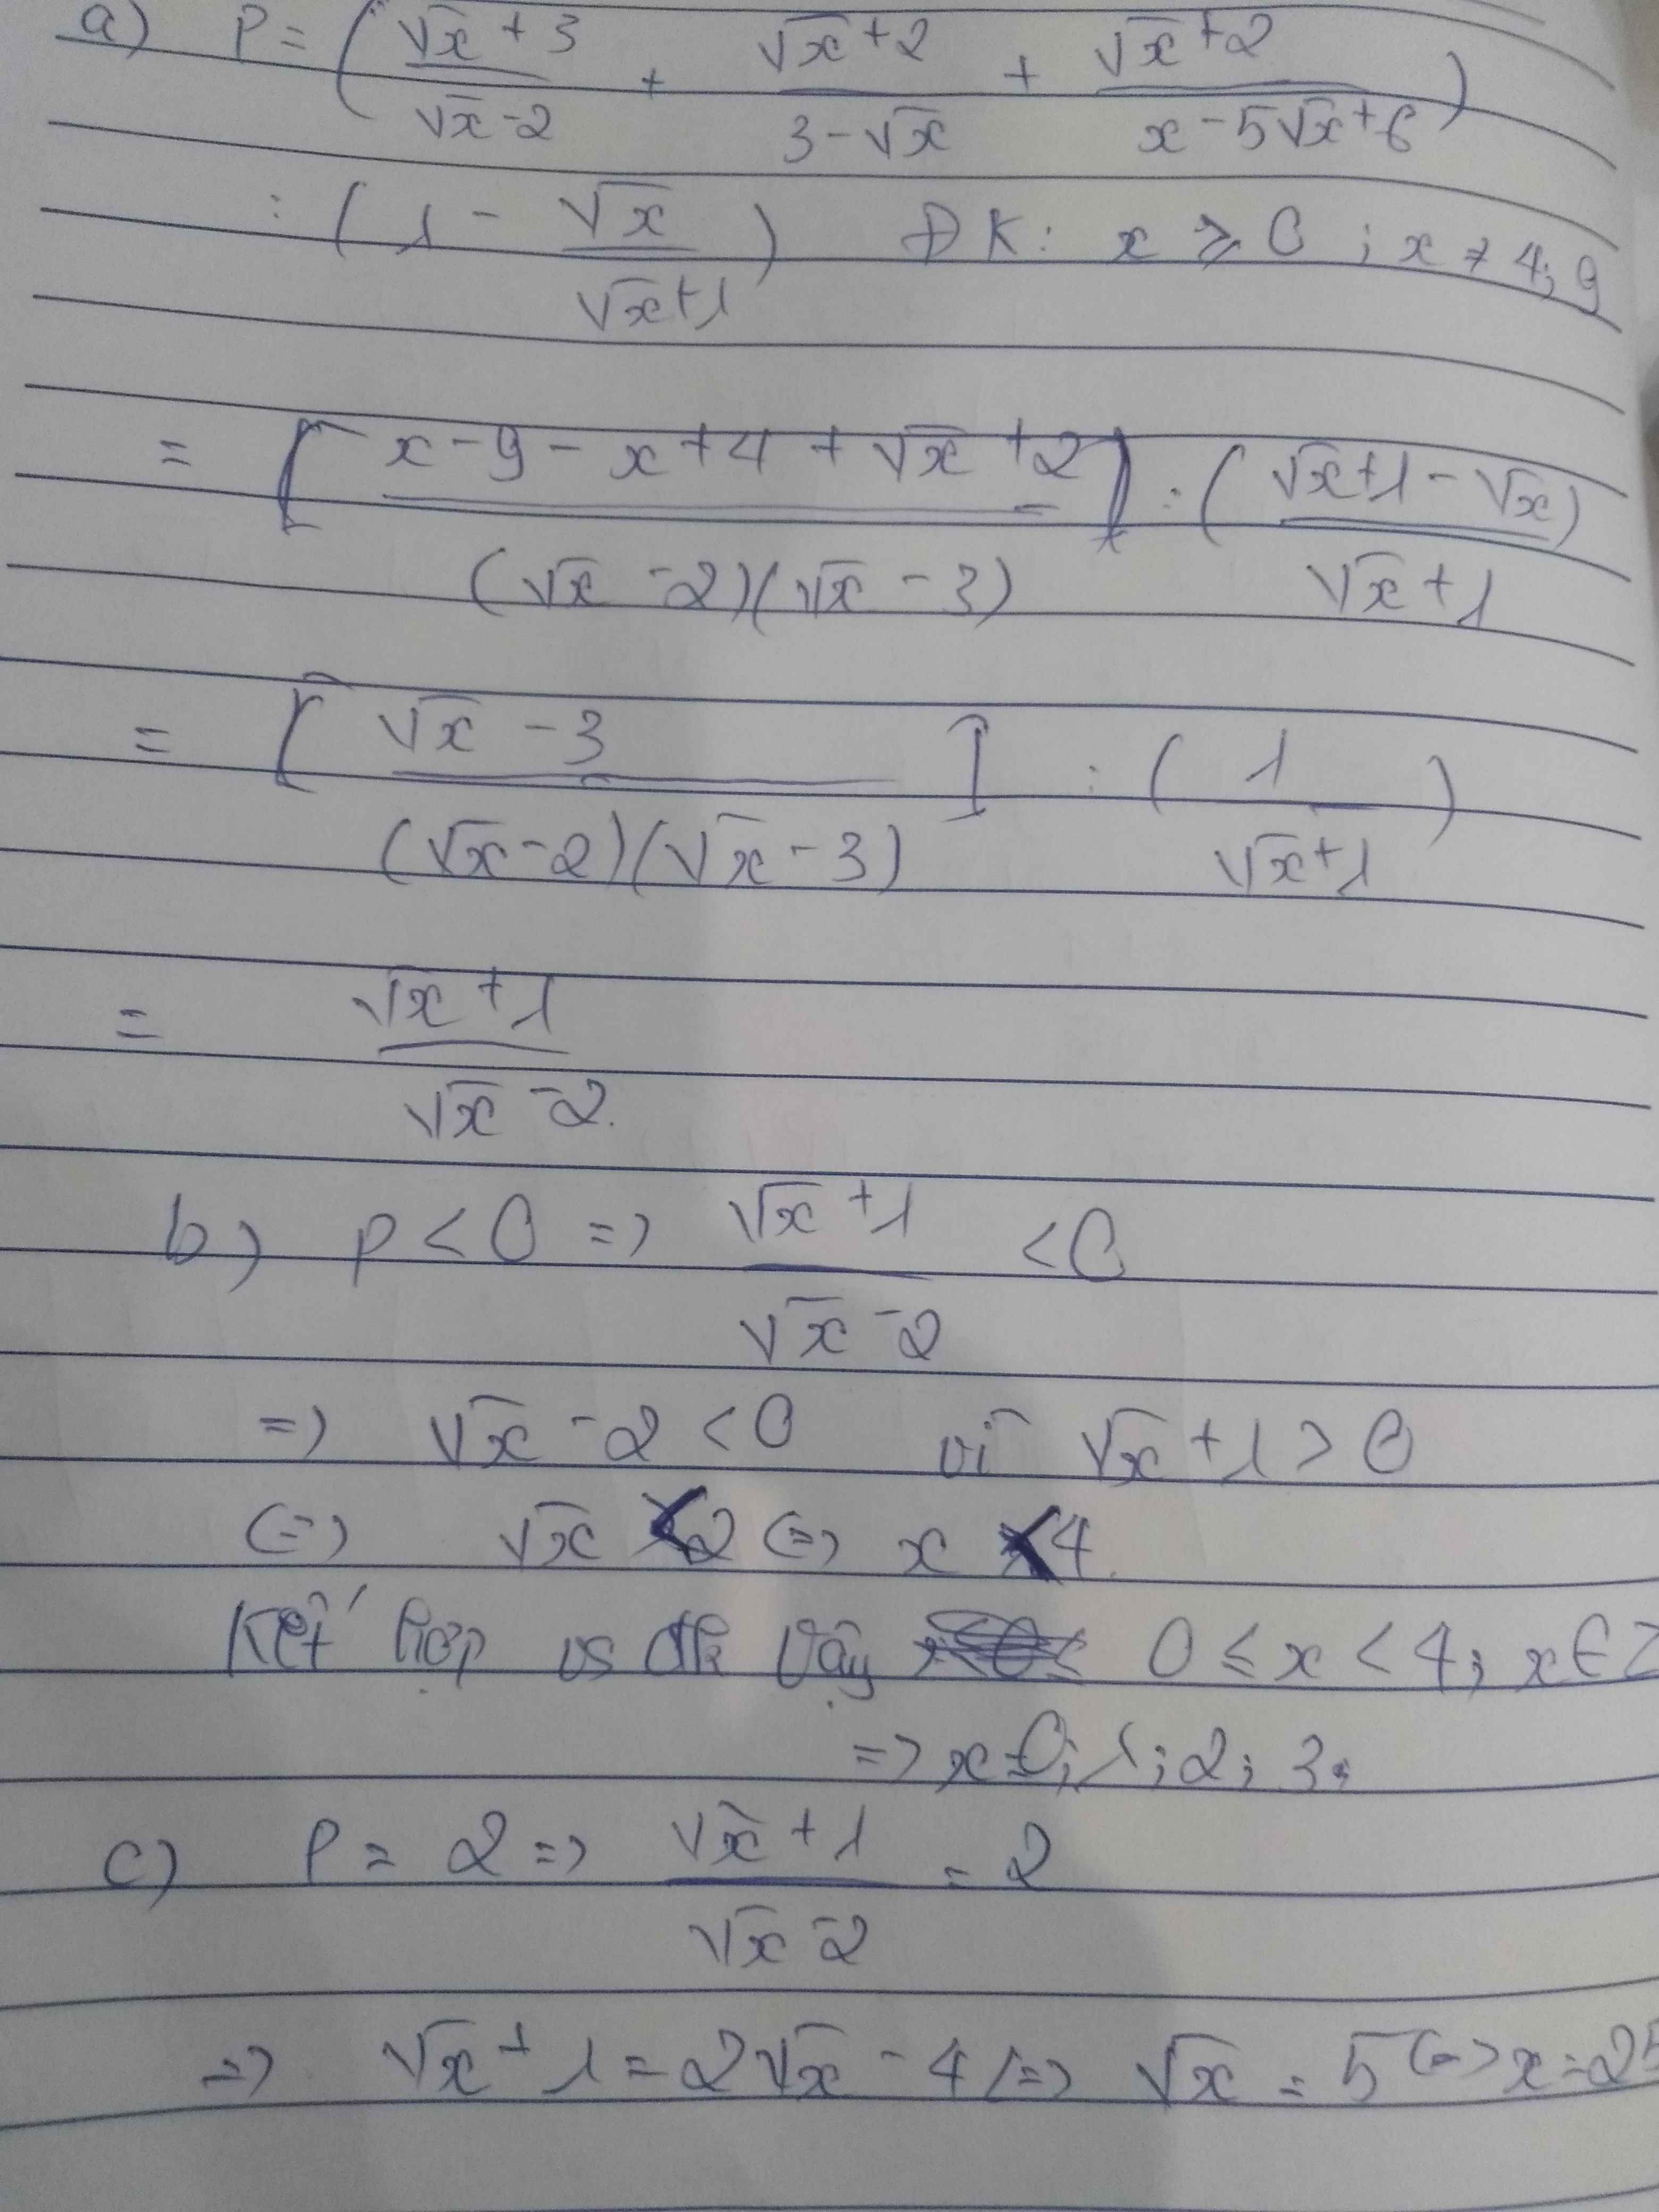 a) P = ( (√x + 3)/(√x - 2) + (√x + 2)/(3 - √x) + (√x + 2)/(x - 5√x + 6) )
: ( 1 - √x/(√x + 1) ) ĐK: x ⩾ 0 ; x ≠ 4; 9
= [ (x - 9 - x + 4 + √x + 2)/((√x - 2)(√x - 3)) ] : ( (√x + 1 - √x)/(√x + 1) )
= [ (√x - 3)/((√x - 2)(√x - 3)) ] : ( 1/(√x + 1) )
= (√x + 1)/(√x - 2)
b) P < 0 => (√x + 1)/(√x - 2) < 0
=> √x - 2 < 0 vì √x + 1 > 0
<=> √x < 2 <=> x < 4.
Kết hợp vs đk vậy 0 ≤ x < 4; x ∈ Z
=> x = 0; 1; 2; 3.
c) P = 2 => (√x + 1)/(√x - 2) = 2
=> √x + 1 = 2√x - 4 <=> √x = 5 <=> x = 25